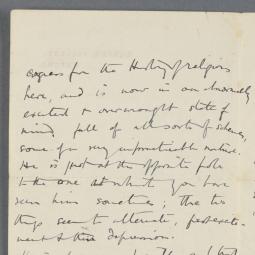 congress for the History of religions
here, and is now in an abnormally
excited & overwrought state of
mind, full of all sorts of schemes,
some of a very impracticable nature.
He is just at the opposite pole
to the one at which you have
seen him sometimes; the two
things seem to alternate,
ment & then depression.